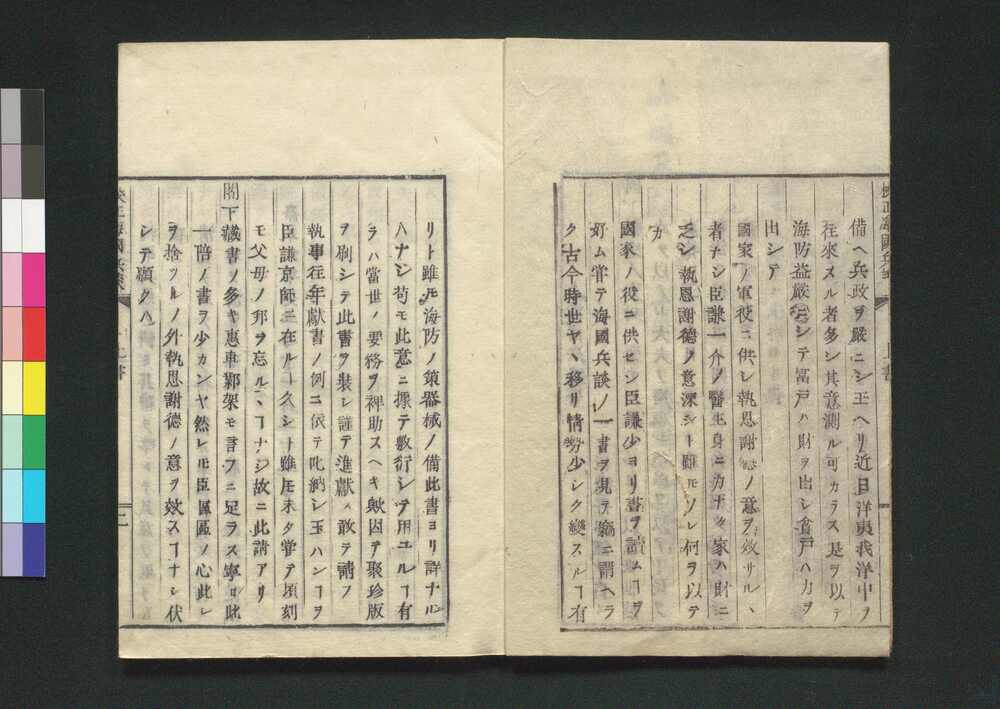 備ヘ兵政ヲ嚴ニシ玉ヘリ近日洋夷我洋中ヲ
往來スル者多シ其意測ル可カラス是ヲ以テ
海防益嚴ニシテ富戸ハ財ヲ出シ貧戸ハ力ヲ
出シテ
國家ノ軍役ニ供シ執恩謝德ノ意ヲ效サル丶
者ナシ臣謙一介ノ醫生身ニ力ナク家ハ財ニ
乏シ執恩謝德ノ意深シト雖モソレ何ヲ以テ
カ
國家ノ役ニ供セン臣謙少ヨリ書ヲ讀ムヿヲ
好ム嘗テ海國兵談ノ一書ヲ見テ竊ニ謂ヘラ
ク古今時世ヤヽ移リ情勢少シク變スルヿ有
リト雖モ海防ノ鎮器械ノ備此書ヨリ詳ナル
ハナシ苟モ此意ニ據テ敷衍シテ用ユルヿ有
ラハ當世ノ要務ヲ裨助スヘキ歟因テ聚珍版
ヲ刷シテ此書ヲ裝シ謹テ進獻ス敢テ請フ
執事往年獻書ノ例ニ依テ叱納シ玉ハンヿヲ
臣謙京師ニ在ルヿ久シト雖モ未タ嘗テ頃刻
モ父母ノ邦ヲ忘ルヽヿナシ故ニ此請アリ
閣下藏書ノ多キ惠車鄴架モ言フニ足ラス寧ロ此
一陪ノ書ヲ少カンヤ然レモ臣區區ノ心此レ
ヲ捨ツルノ外執恩謝德ノ意ヲ效スヿナシ伏
シテ願クハ